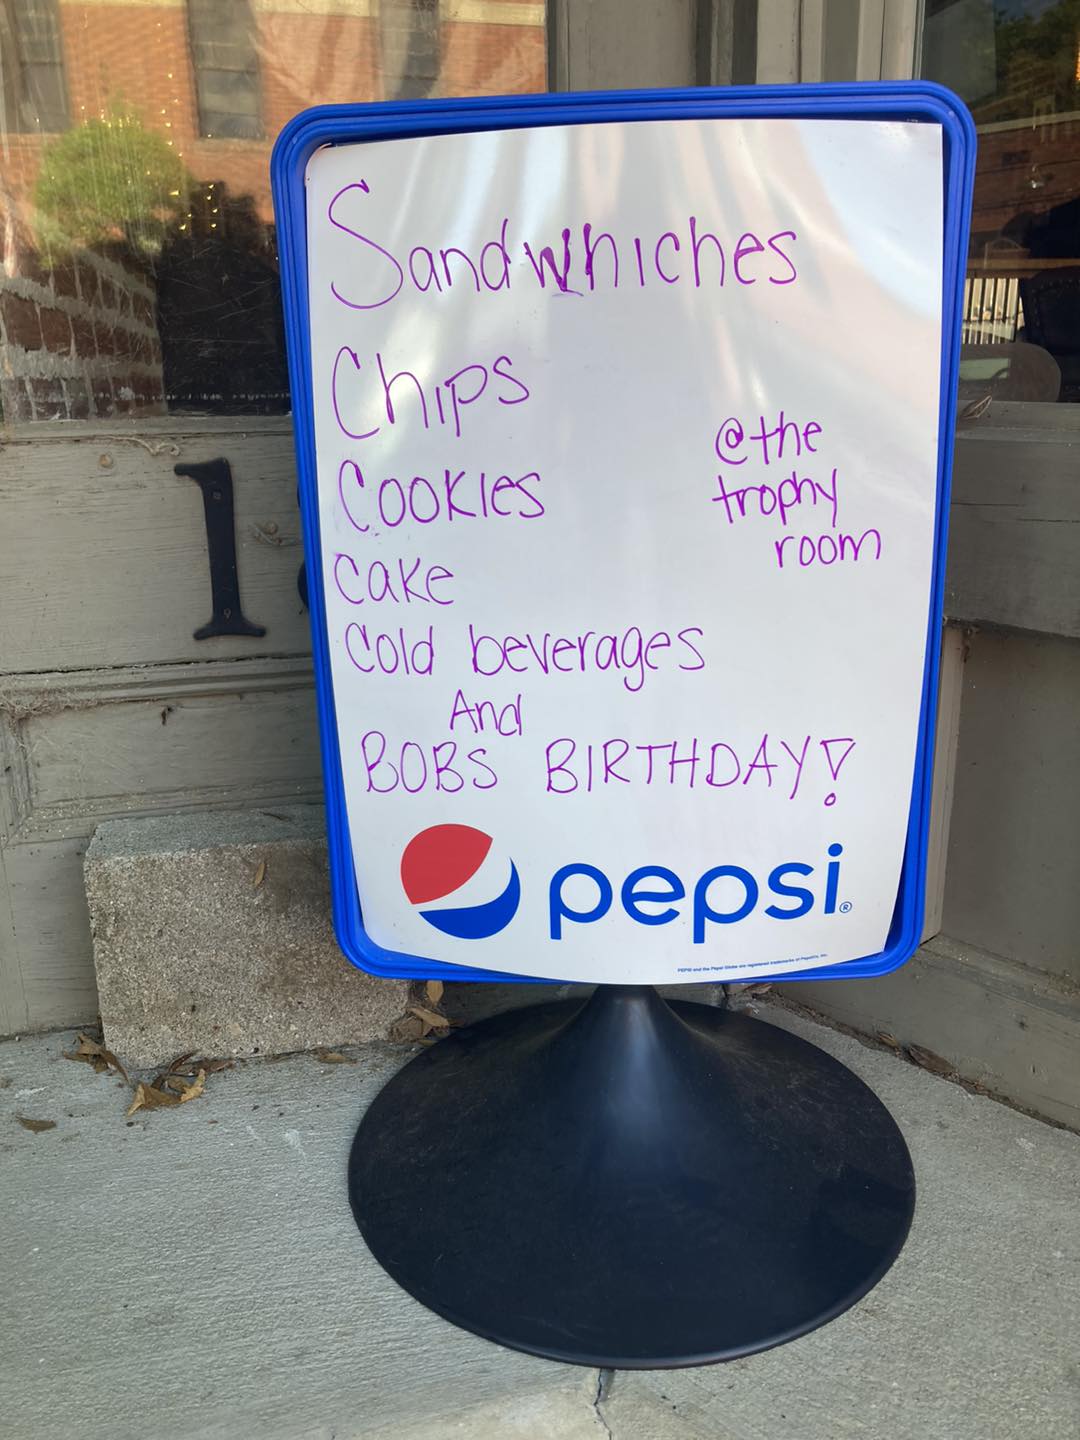 Sandwhiches
Chips
@the
trophy
room
Cookies
Cake
Cold beverages
And
BOBS BIRTHDAY!
pepsi®
PEPSI and the Pepsi Globe are registered trademarks of PepsiCo, Inc.
1